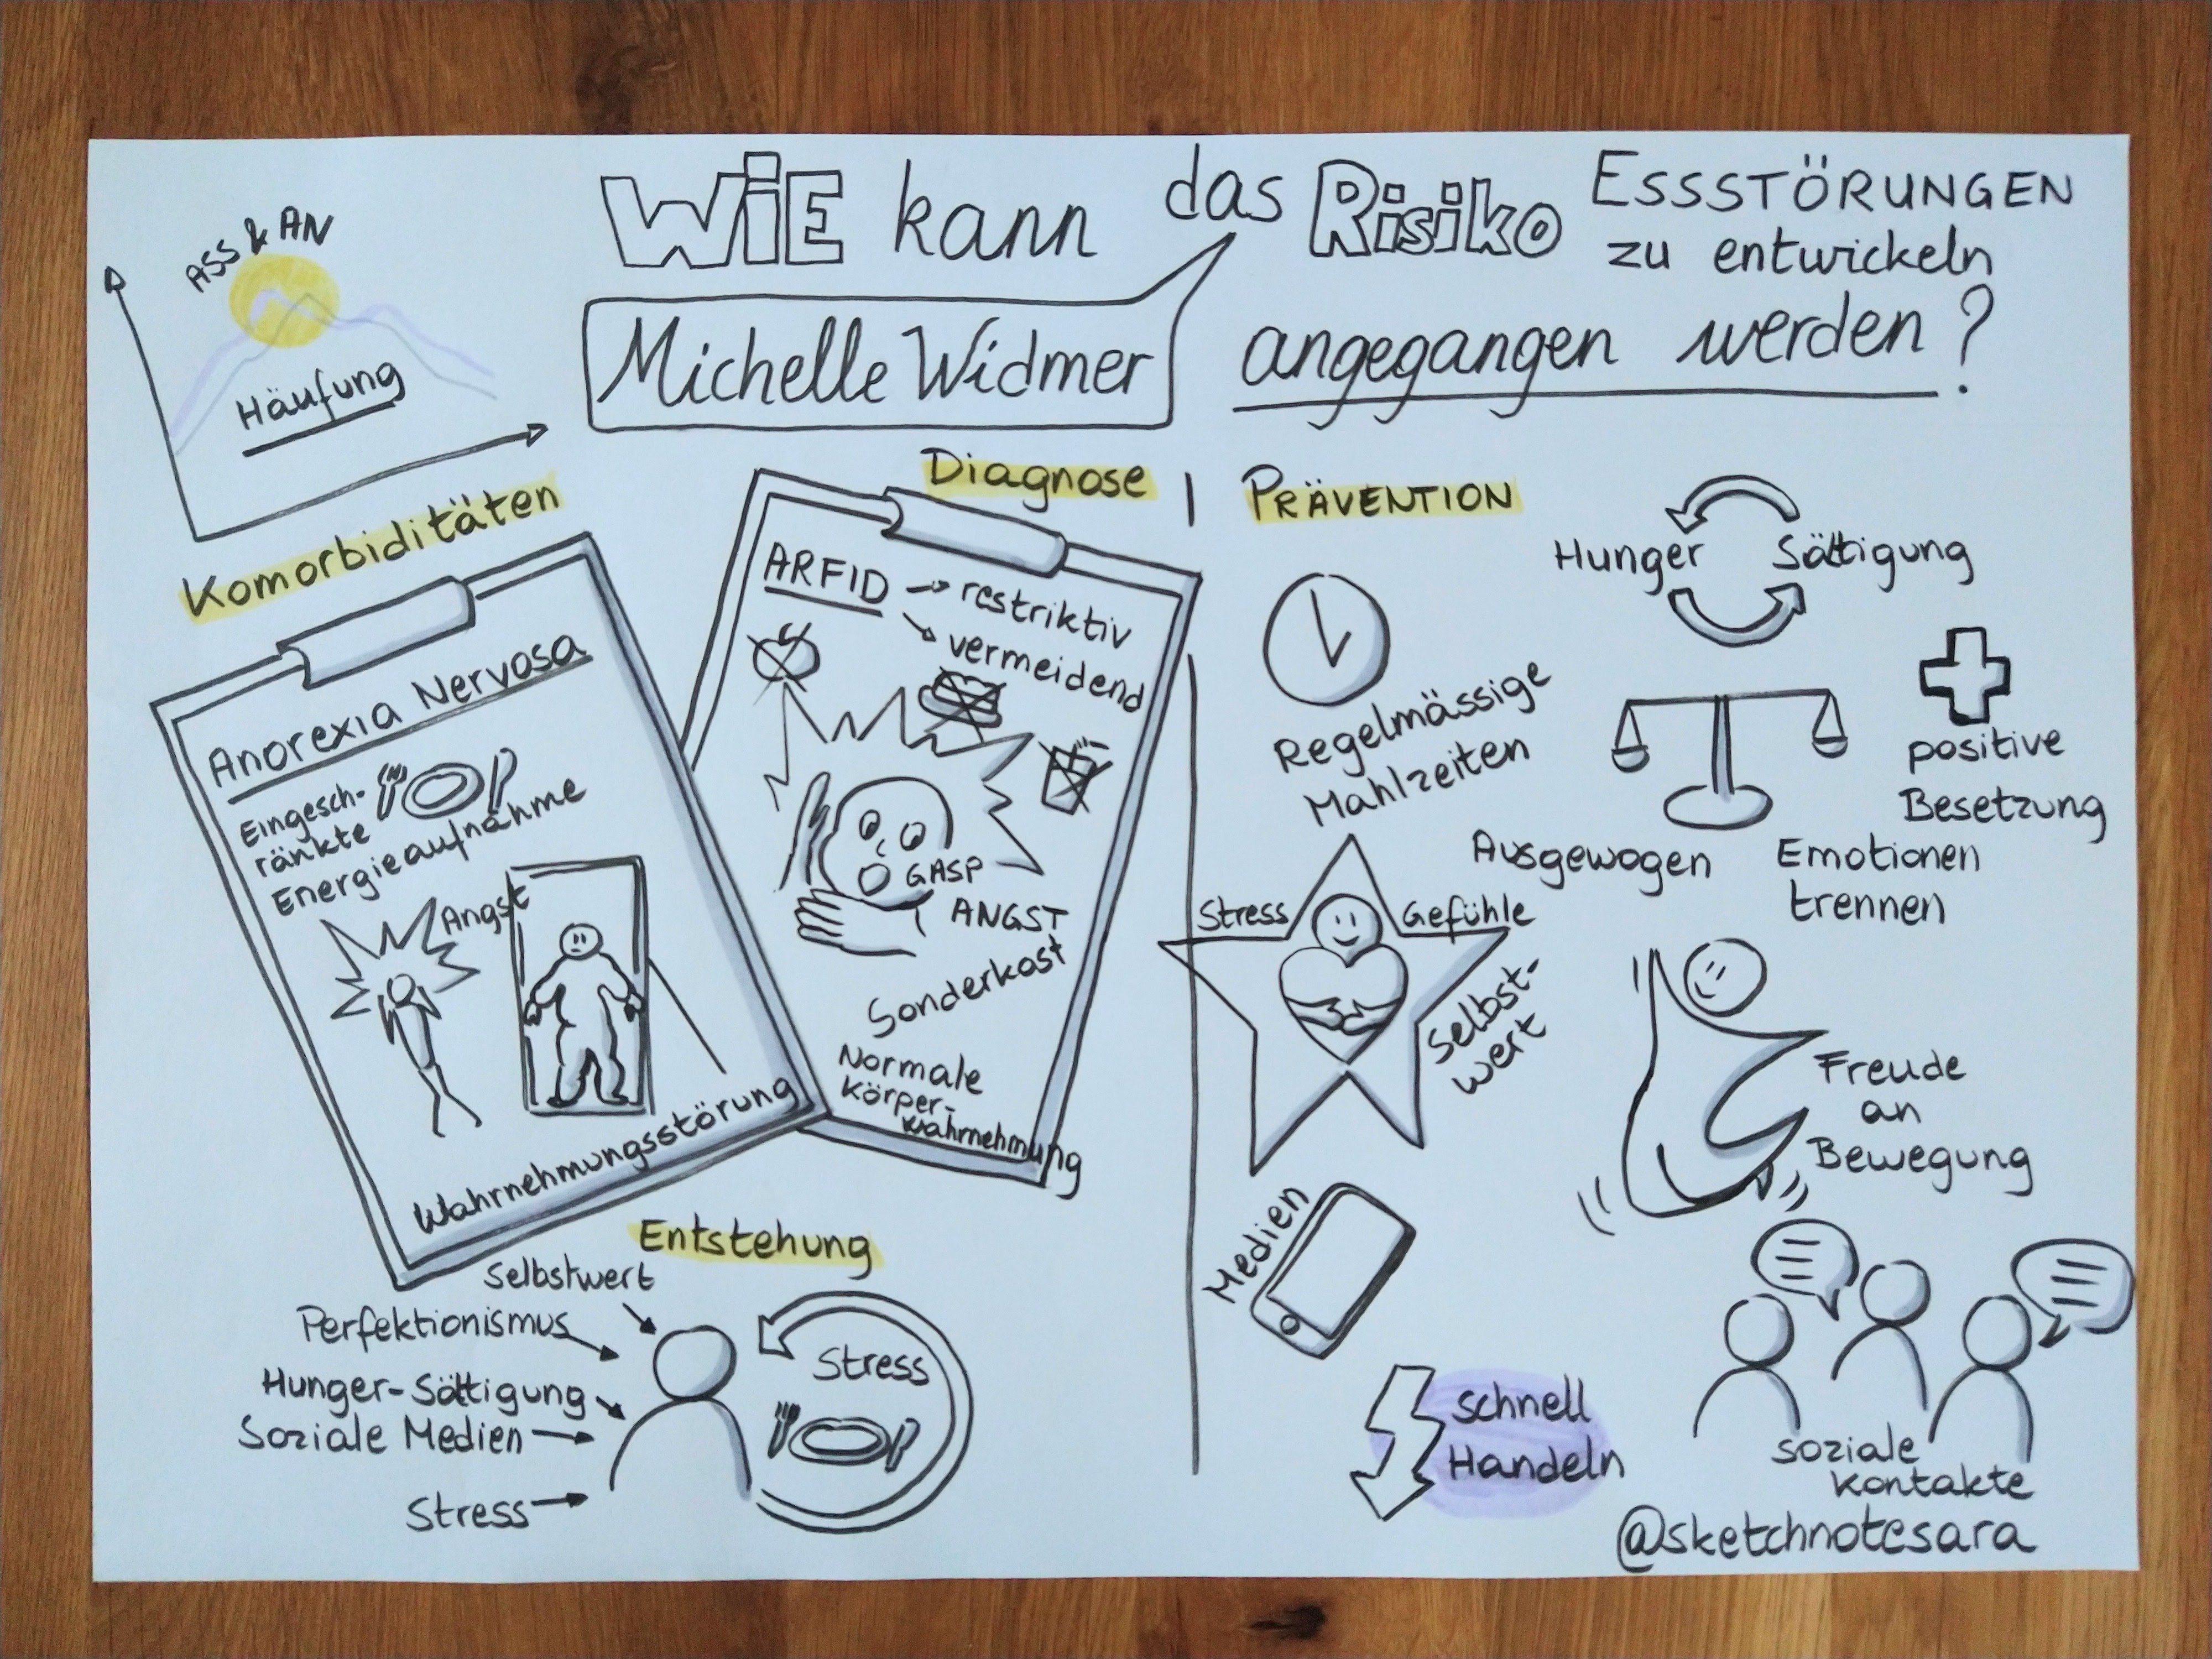 WiE kann das Risiko ESSSTÖRUNGEN
zu entwickeln
angegangen werden?
Michelle Widmer
ASS & AN
Häufung
Komorbiditäten
Anorexia Nervosa
Eingesch-
ränkte
Energieaufnahme
Angst
Wahrnehmungsstörung
Diagnose
ARFID → restriktiv
vermeidend
GASP
ANGST
Sonderkost
Normale
Körper-
wahrnehmung
Entstehung
Selbstwert
Perfektionismus
Hunger-Sättigung
Soziale Medien
Stress
Stress
PRÄVENTION
Hunger Sättigung
Regelmässige
Mahlzeiten
Ausgewogen
positive
Besetzung
Emotionen
trennen
Stress Gefühle
Selbst-
wert
Freude
an
Bewegung
Medien
schnell
Handeln
soziale
Kontakte
@sketchnotesara